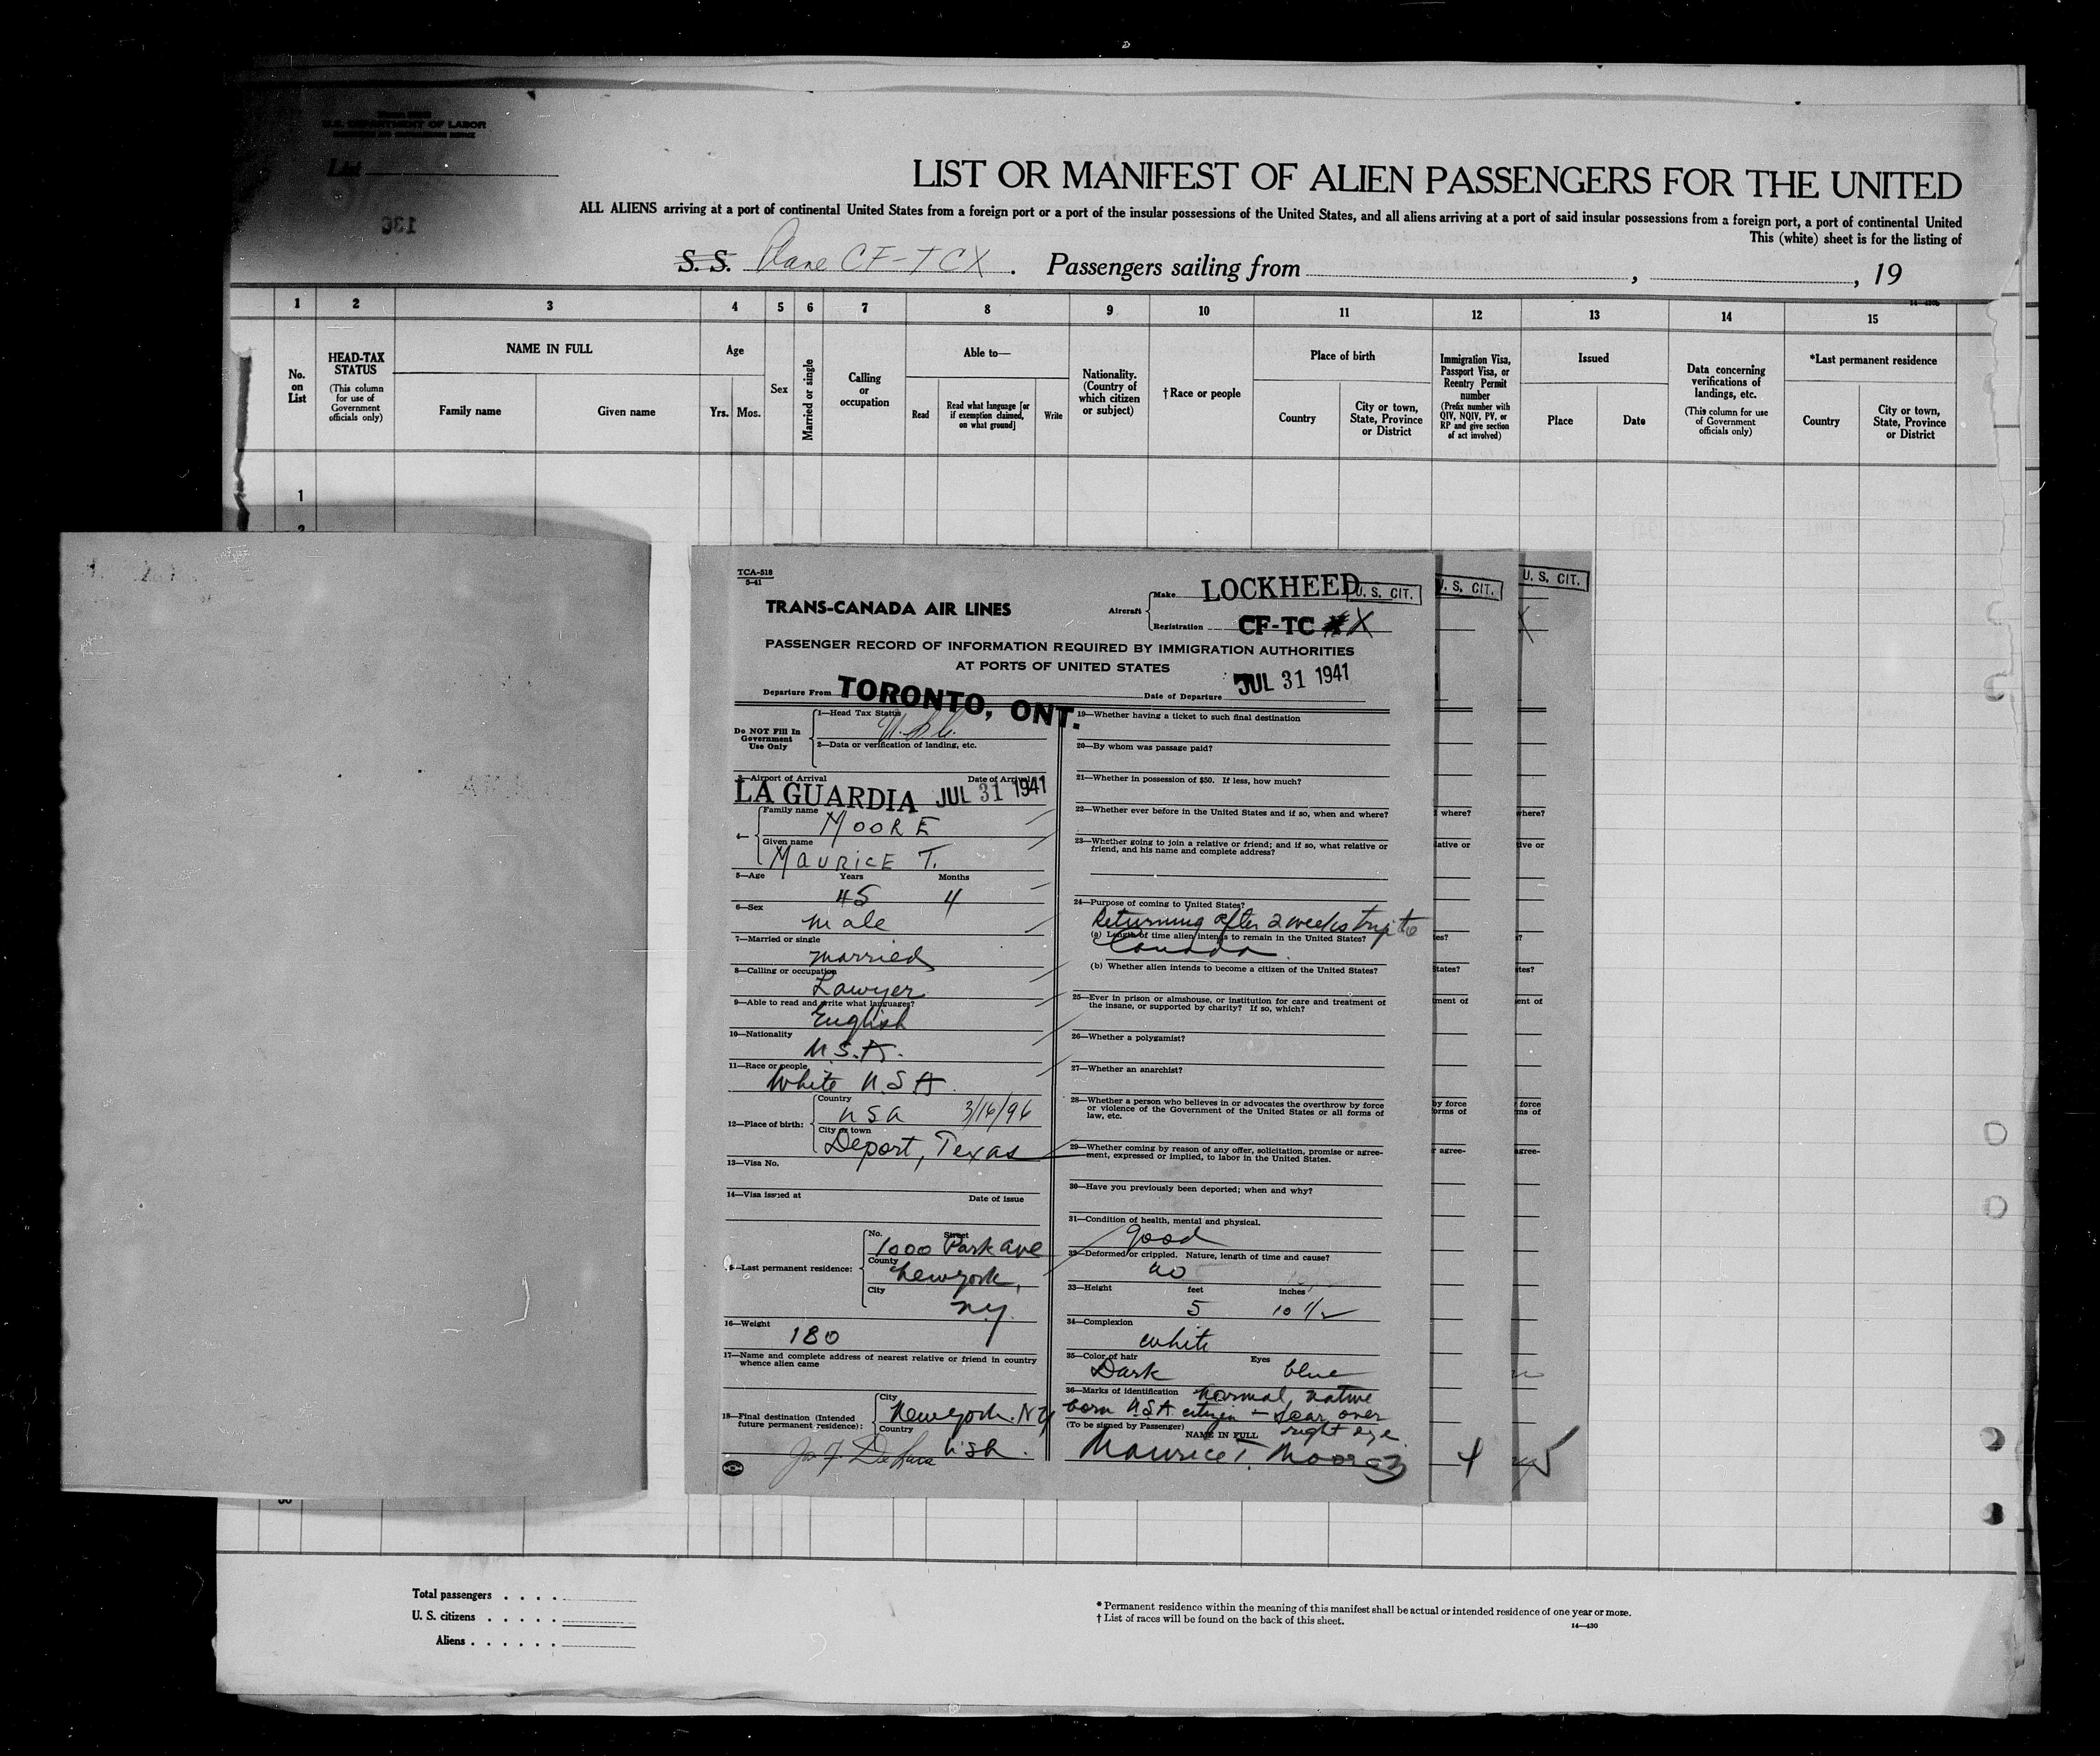 U.S. DEPARTMENT OF LABOR
List
136
LIST OR MANIFEST OF ALIEN PASSENGERS FOR THE UNITED
ALL ALIENS arriving at a port of continental United States from a foreign port or a port of the insular possessions of the United States, and all aliens arriving at a port of said insular possessions from a foreign port, a port of continental United
This (white) sheet is for the listing of
S. S. Plane CF-TCX . Passengers sailing from , , 19
1 2 3 4 5 6 7 8 9 10 11 12 13 14 15
No. on List
HEAD-TAX STATUS
(This column for use of Government officials only)
NAME IN FULL
Family name
Given name
Age
Yrs. Mos.
Sex
Married or single
Calling or occupation
Able to—
Read
Read what language [or if exemption claimed, on what ground]
Write
Nationality. (Country of which citizen or subject)
†Race or people
Place of birth
Country
City or town, State, Province or District
Immigration Visa, Passport Visa, or Reentry Permit number
(Prefix number with QIV, NQIV, PV, or RP and give section of act involved)
Issued
Place
Date
Data concerning verifications of landings, etc.
(This column for use of Government officials only)
*Last permanent residence
Country
City or town, State, Province or District
1
2
TCA-518
5-41
TRANS-CANADA AIR LINES
Aircraft
Make LOCKHEED
Registration CF-TC X
U. S. CIT.
U. S. CIT.
U. S. CIT.
X
PASSENGER RECORD OF INFORMATION REQUIRED BY IMMIGRATION AUTHORITIES
AT PORTS OF UNITED STATES
Departure From TORONTO, ONT.
Date of Departure JUL 31 1941
Do NOT Fill In
Government
Use Only
1—Head Tax Status
2—Data or verification of landing, etc.
3—Airport of Arrival Date of Arrival
LA GUARDIA JUL 31 1941
Family name
MOORE
Given name
MAURICE T.
5—Age Years Months
45 4
6—Sex
male
7—Married or single
married
8—Calling or occupation
Lawyer
9—Able to read and write what languages?
English
10—Nationality
U.S.A.
11—Race or people
White USA
12—Place of birth:
Country
USA 3/16/96
City or town
Deport, Texas
13—Visa No.
14—Visa issued at Date of issue
15—Last permanent residence:
No. Street
1000 Park Ave
County
New York,
City
N.Y.
16—Weight
180
17—Name and complete address of nearest relative or friend in country
whence alien came
18—Final destination (Intended
future permanent residence):
City
New York. NY
Country
USA.
19—Whether having a ticket to such final destination
20—By whom was passage paid?
21—Whether in possession of $50. If less, how much?
22—Whether ever before in the United States and if so, when and where?
23—Whether going to join a relative or friend; and if so, what relative or
friend, and his name and complete address?
24—Purpose of coming to United States?
Returning after 2 weeks trip to
(a) Length of time alien intends to remain in the United States?
Canada.
(b) Whether alien intends to become a citizen of the United States?
25—Ever in prison or almshouse, or institution for care and treatment of
the insane, or supported by charity? If so, which?
26—Whether a polygamist?
27—Whether an anarchist?
28—Whether a person who believes in or advocates the overthrow by force
or violence of the Government of the United States or all forms of
law, etc.
29—Whether coming by reason of any offer, solicitation, promise or agree-
ment, expressed or implied, to labor in the United States.
30—Have you previously been deported; when and why?
31—Condition of health, mental and physical.
good
32—Deformed or crippled. Nature, length of time and cause?
no
33—Height feet inches
5 10 1/2
34—Complexion
white
35—Color of hair Eyes
Dark blue
36—Marks of identification Normal, native
born USA citizen - scar over
(To be signed by Passenger)
NAME IN FULL right eye
Maurice T. Moore
3
where?
lative or
es?
States?
tment of
by force
orms of
r agree-
4
where?
tive or
s?
tes?
ent of
force
ms of
agree-
5
30
Total passengers . . . .
U. S. citizens . . . . .
Aliens . . . . . .
* Permanent residence within the meaning of this manifest shall be actual or intended residence of one year or more.
† List of races will be found on the back of this sheet.
14—430